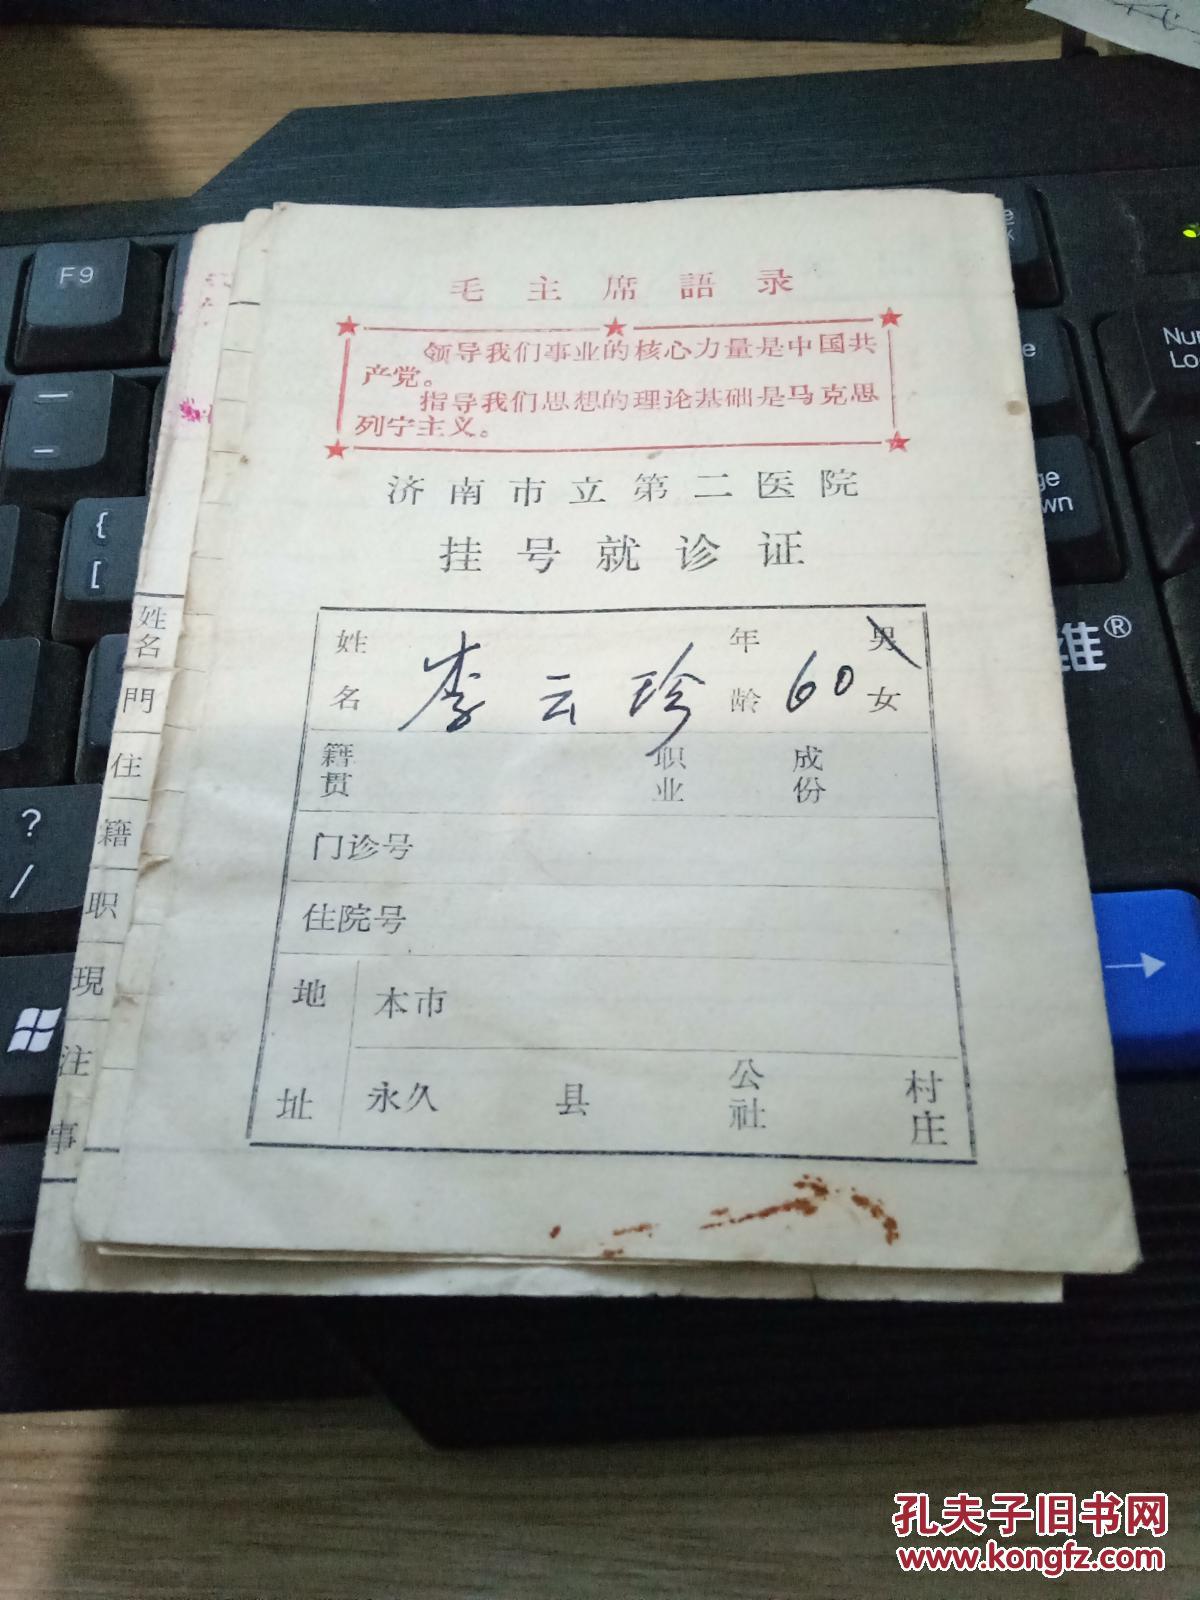 毛主席語录
领导我们事业的核心力量是中国共
产党。
指导我们思想的理论基础是马克思
列宁主义。
济南市立第二医院
挂号就诊证
姓名 李云珍 年龄 60 男 女
籍贯 职业 成份
门诊号
住院号
地址 本市
永久 县 公社 村庄
姓名
門
住
籍
职
現
注
事
F9
{
[
?
/
维®
孔夫子旧书网
www.kongfz.com